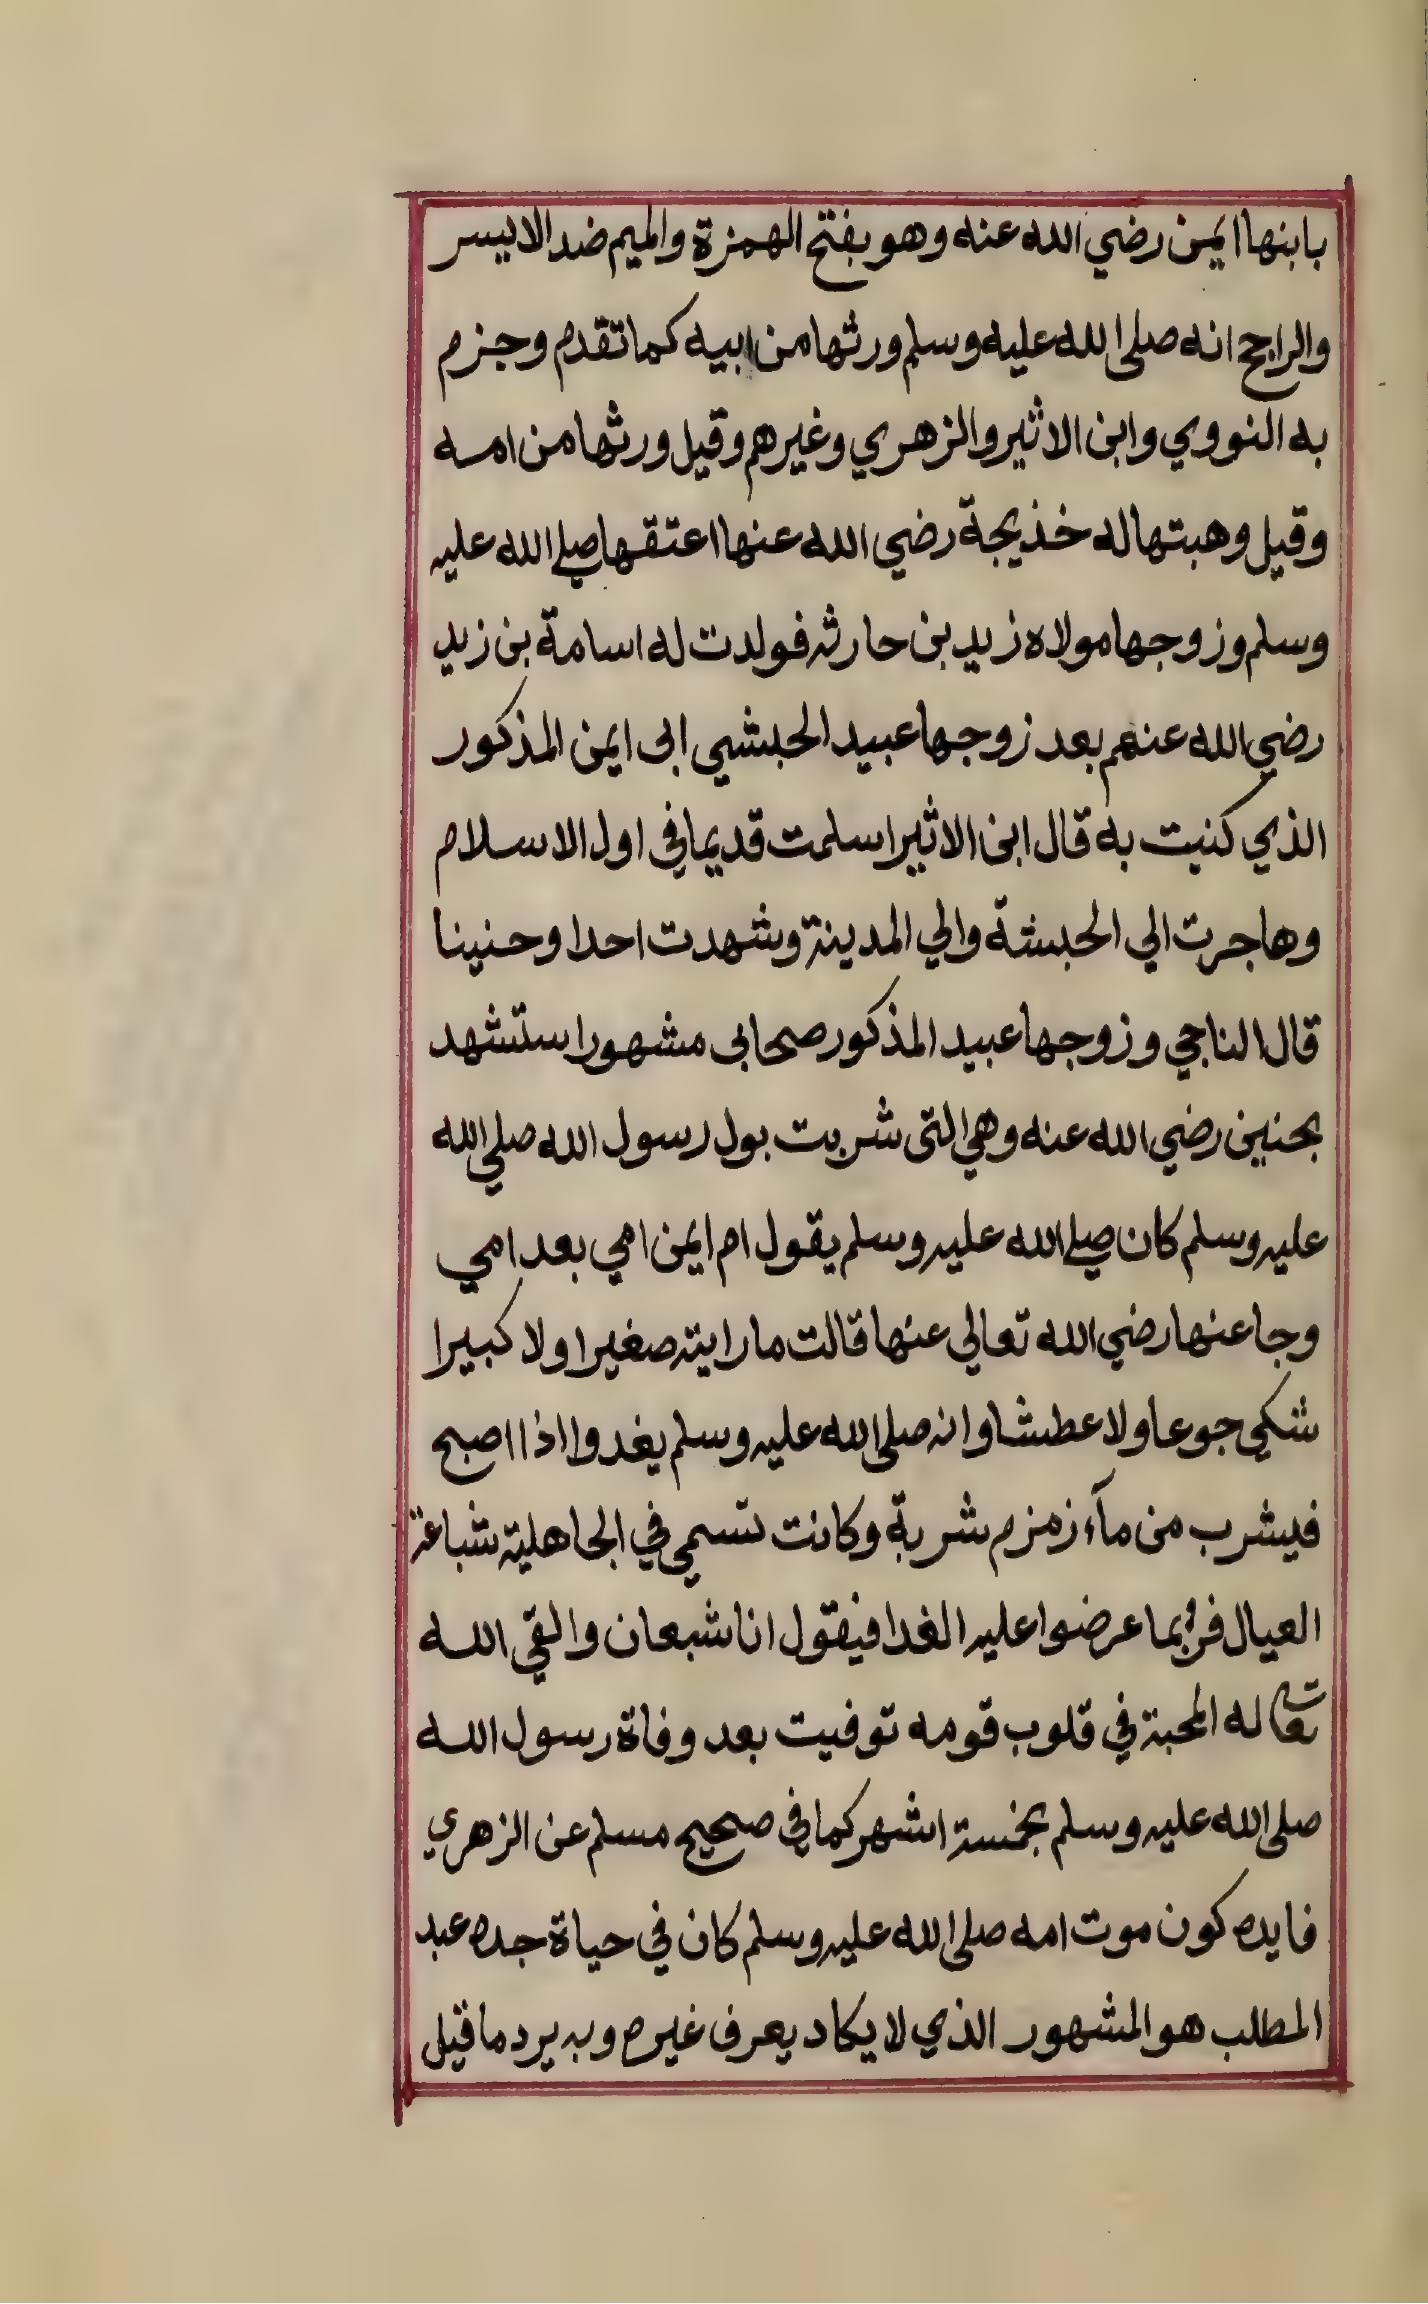 بابنها ايمن رضي الله عنه وهو بفتح الهمزة والميم ضد الايسر
والراجح انه صلى الله عليه وسلم ورثها من ابيه كما تقدم وجزم
به النووي وابن الاثير والزهري وغيرهم وقيل ورثها من امه
وقيل وهبتها له خذيجة رضي الله عنها اعتقها صلي الله عليه
وسلم وزوجها مولاه زيد بن حارثه فولدت له اسامة بن زيد
رضي الله عنهم بعد زوجها عبيد الحبشي ابى ايمن المذكور
الذي كنيت به قال ابن الاثير اسلمت قديما فى اول الاسلام
وهاجرت الي الحبشة والي المدينة وشهدت احدا وحنينا
قال الناجي وزوجها عبيد المذكور صحابى مشهور استشهد
بحنين رضي الله عنه وهي التى شربت بول رسول الله صلي الله
عليه وسلم كان صلي الله عليه وسلم يقول ام ايمن امي بعد امي
وجا عنها رضي الله تعالي عنها قالت ما رايته صغيرا ولا كبيرا
شكي جوعا ولا عطشا وانه صلى الله عليه وسلم يغدوا اذا اصبح
فيشرب من مآء زمزم شربة وكانت تسمي في الجاهلية شباعة
العيال فربما عرضوا عليه الغدا فيقول انا شبعان والقي الله
تعالى له المحبة في قلوب قومه توفيت بعد وفاة رسول الله
صلى الله عليه وسلم بخمسة اشهر كما فى صحيح مسلم عن الزهري
فايده كون موت امه صلى الله عليه وسلم كان في حياة جده عبد
المطلب هو المشهور الذي لا يكاد يعرف غيره وبه يرد ما قيل